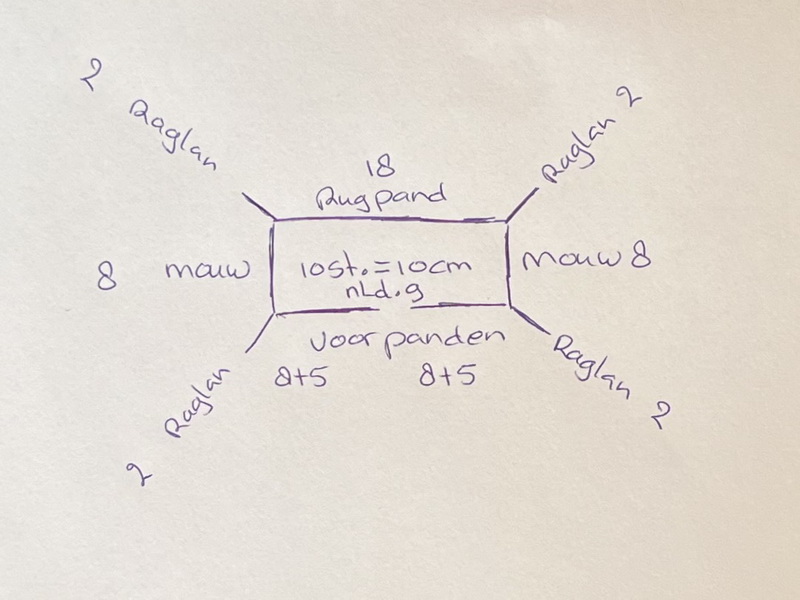 2 Raglan
Raglan 2
18
Rugpand
8 mouw
10st. = 10cm
nLd. 9
mouw 8
voorpanden
8+5 8+5
2 Raglan
Raglan 2